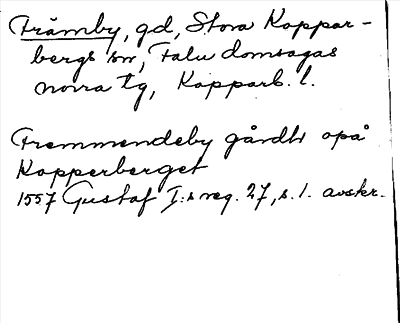 Främby, gd, Stora Koppar-
bergs sn, Falu domsagas
norra tg, Kopparb. l.
Fremmendeby gårdh opå
Kopperberget
1557 Gustaf I:s reg. 27, s. 1. avskr.